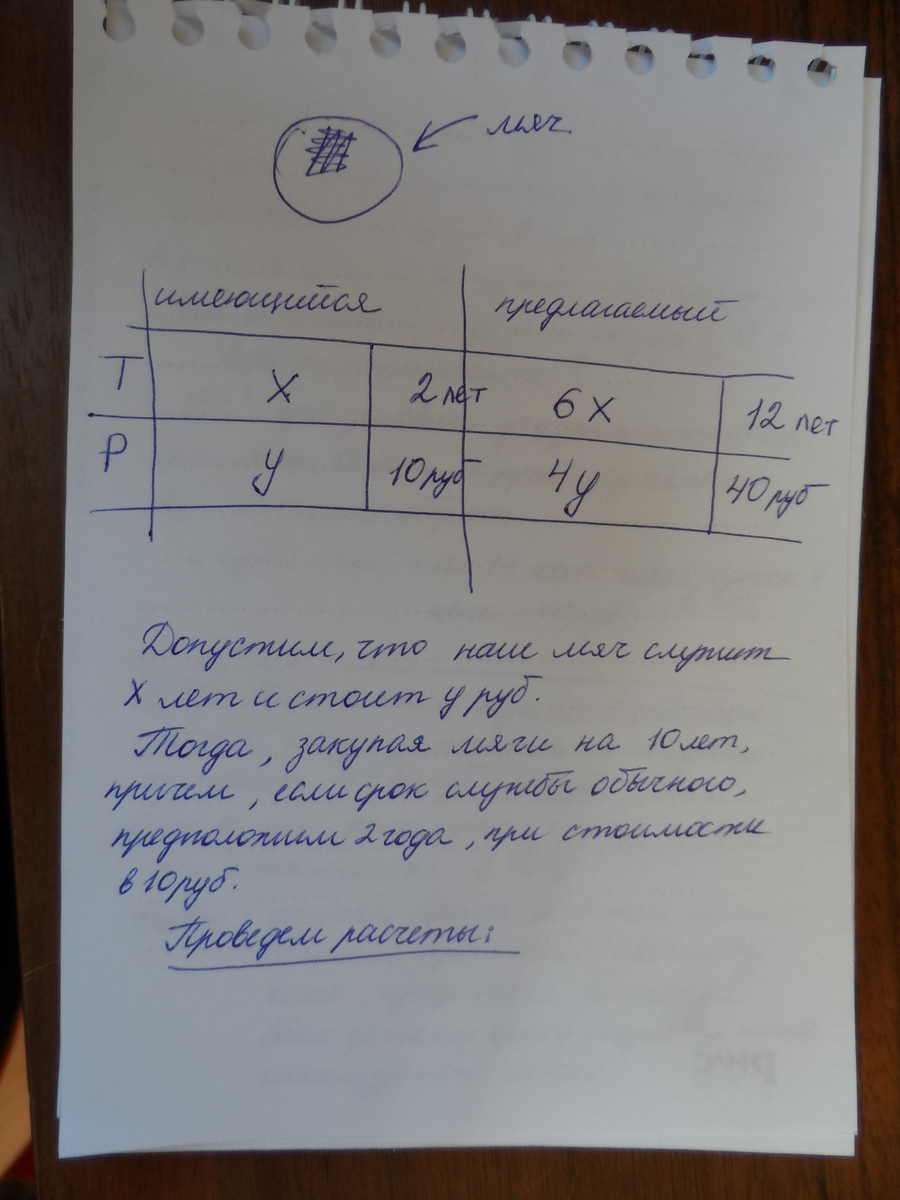 мяч
имеющийся предлагаемый
T X 2 лет 6X 12 лет
P y 10 руб 4y 40 руб
Допустим, что наш мяч служит
X лет и стоит y руб.
Тогда, закупая мячи на 10 лет,
причем, если срок службы обычного,
предположим 2 года, при стоимости
в 10 руб.
Проведем расчеты:
pwc